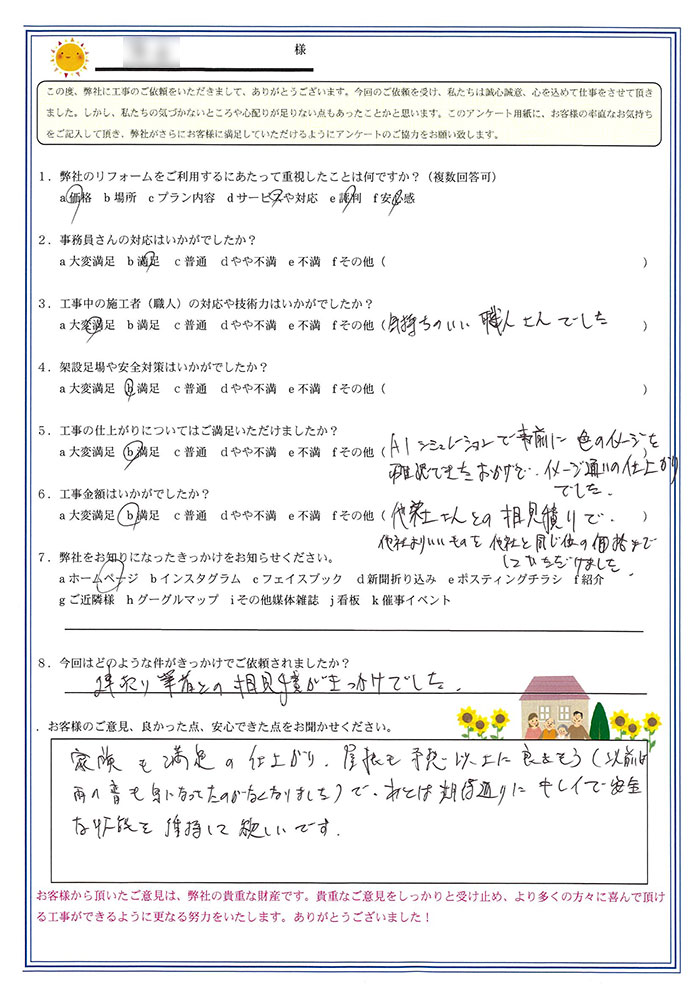 様
この度、弊社に工事のご依頼をいただきまして、ありがとうございます。今回のご依頼を受け、私たちは誠心誠意、心を込めて仕事をさせて頂き
ました。しかし、私たちの気づかないところや心配りが足りない点もあったことかと思います。このアンケート用紙に、お客様の率直なお気持ち
をご記入して頂き、弊社がさらにお客様に満足していただけるようにアンケートのご協力をお願い致します。
1．弊社のリフォームをご利用するにあたって重視したことは何ですか？（複数回答可）
a 価格　b 場所　c プラン内容　d サービスや対応　e 評判　f 安心感
2．事務員さんの対応はいかがでしたか？
a 大変満足　b 満足　c 普通　d やや不満　e 不満　f その他（　　　）
3．工事中の施工者（職人）の対応や技術力はいかがでしたか？
a 大変満足　b 満足　c 普通　d やや不満　e 不満　f その他（気持ちのいい職人さんでした）
4．架設足場や安全対策はいかがでしたか？
a 大変満足　b 満足　c 普通　d やや不満　e 不満　f その他（　　　）
5．工事の仕上がりについてはご満足いただけましたか？
a 大変満足　b 満足　c 普通　d やや不満　e 不満　f その他（AIシミュレーションで事前に色のイメージを
確認できたおかげで、イメージ通りの仕上がり
でした。）
6．工事金額はいかがでしたか？
a 大変満足　b 満足　c 普通　d やや不満　e 不満　f その他（他業士さんとの相見積りで、）
他社よりいいものを他社と同じ位の価格まで
して
7．弊社をお知りになったきっかけをお知らせください。
a ホームページ　b インスタグラム　c フェイスブック　d 新聞折り込み　e ポスティングチラシ　f 紹介
g ご近隣様　h グーグルマップ　i その他媒体雑誌　j 看板　k 催事イベント
8．今回はどのような件がきっかけでご依頼されましたか？
業者との相見積がきっかけでした。
．お客様のご意見、良かった点、安心できた点をお聞かせください。
家族も満足の仕上がり、屋根も予想以上に良さそう（以前は
雨の音も気になってたのがなくなりました）で、あとは期待通りにキレイで安全
な状態を維持して欲しいです。
お客様から頂いたご意見は、弊社の貴重な財産です。貴重なご意見をしっかりと受け止め、より多くの方々に喜んで頂け
る工事ができるように更なる努力をいたします。ありがとうございました！